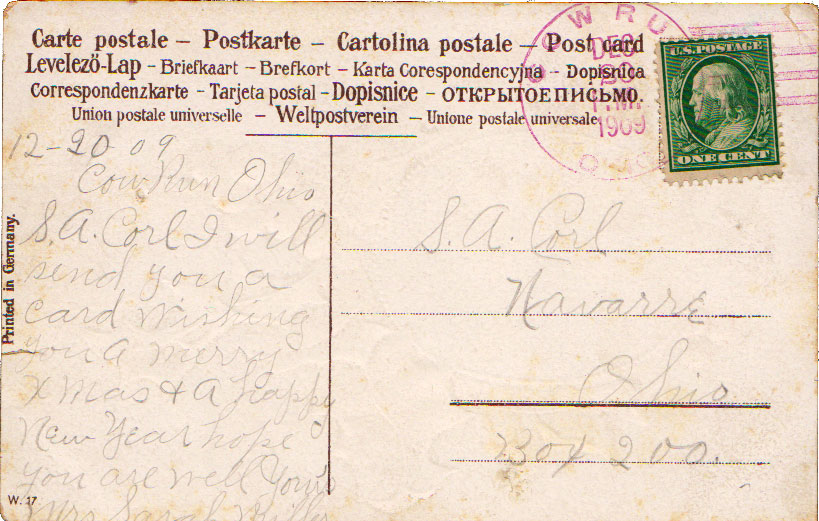 Carte postale – Postkarte – Cartolina postale – Post card
Levelező-Lap – Briefkaart – Brefkort – Karta Corespondencyjna – Dopisnica
Correspondenzkarte – Tarjeta postal – Dopisnice – ОТКРЫТОЕПИСЬМО.
Union postale universelle – Weltpostverein – Unione postale universale
COW RUN
DEC
1909
U.S. POSTAGE
ONE CENT
12-20 09
Cow Run Ohio
S. A. Corl I will
send you a
card wishing
you a merry
xmas & a happy
New Year hope
you are well Yours
Mrs Sarah
S. A. Corl
Navarre
Ohio
Box 200.
Printed in Germany.
W. 17